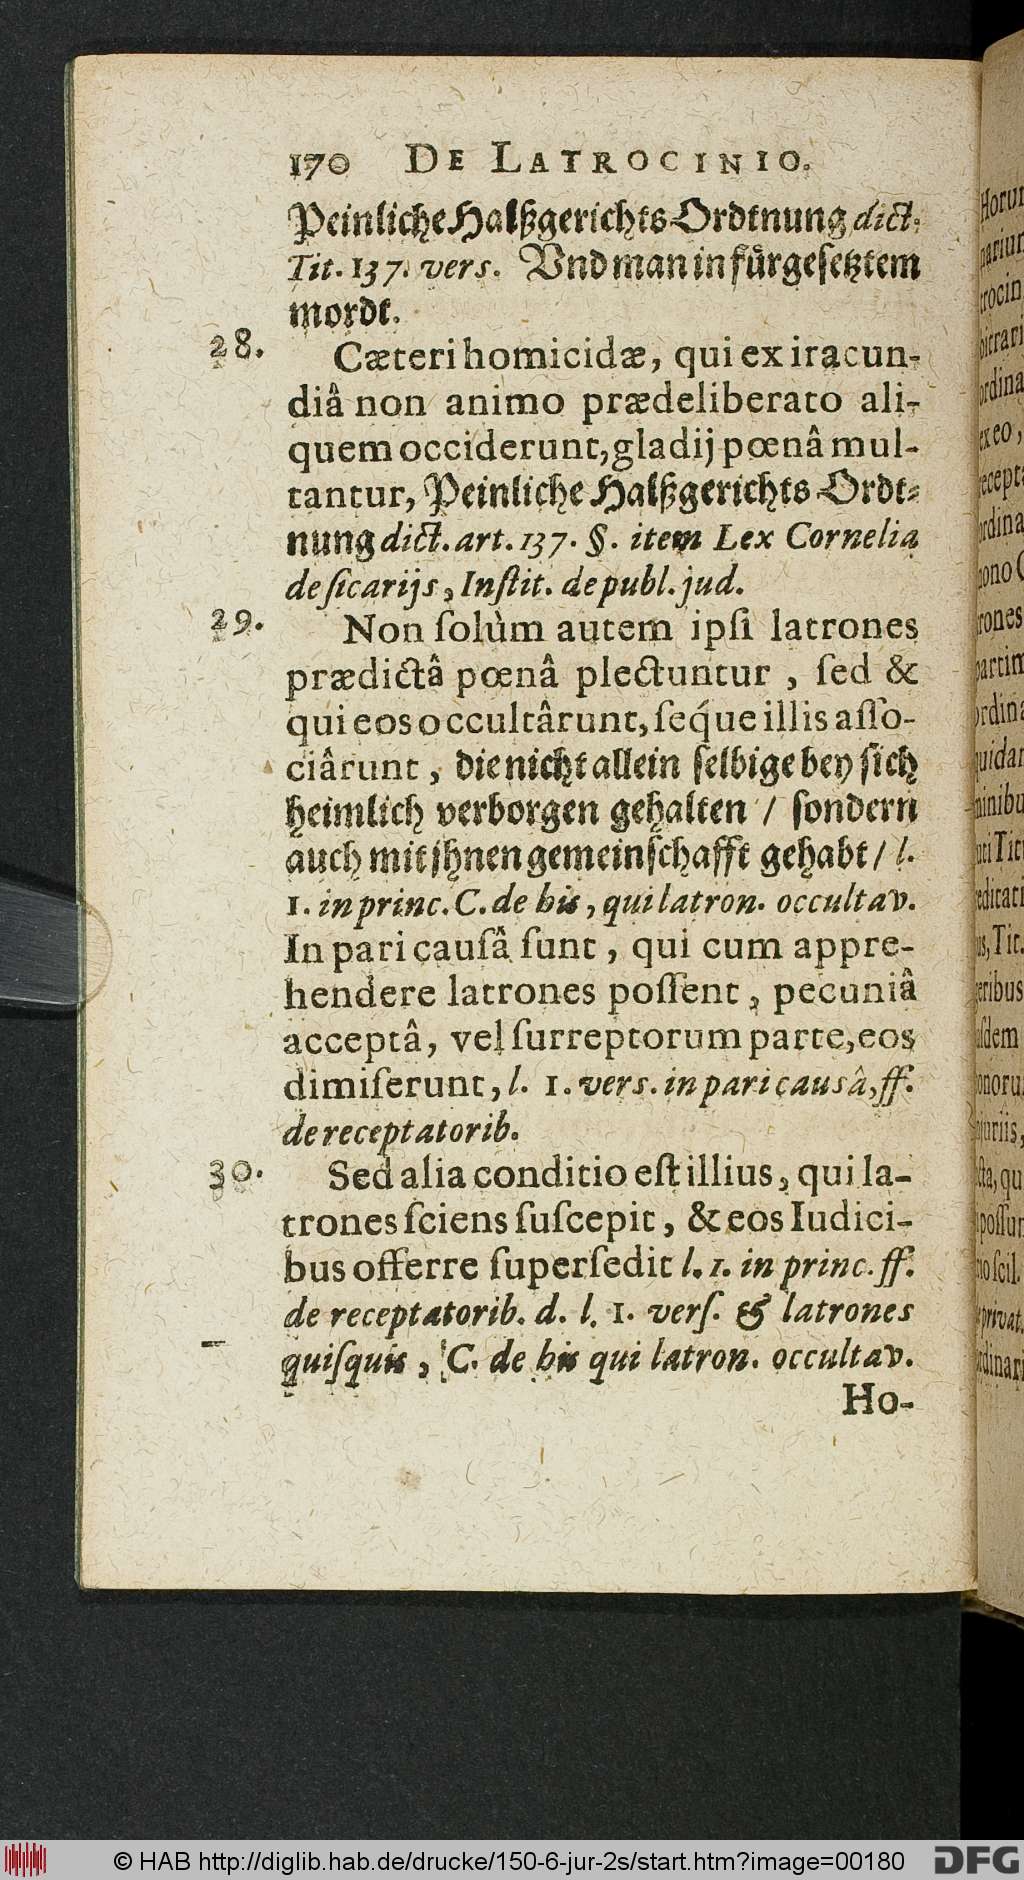 170 DE LATROCINIO.
Peinliche Halßgerichts Ordtnung dict.
Tit. 137. vers. Vnd man in fürgesetztem
mordt.
28. Cæteri homicidæ, qui ex iracun-
diâ non animo prædeliberato ali-
quem occiderunt, gladij pœnâ mul-
tantur, Peinliche Halßgerichts Ordt-
nung dict. art. 137. §. item Lex Cornelia
de ſicarijs, Inſtit. de publ. jud.
29. Non ſolùm autem ipſi latrones
prædictâ pœnâ plectuntur, ſed &
qui eos occultârunt, ſeq́ue illis aſſo-
ciârunt, die nicht allein ſelbige bey ſich
heimlich verborgen gehalten / ſondern
auch mit jhnen gemeinſchafft gehabt / l.
1. in princ. C. de his, qui latron. occultav.
In pari cauſâ ſunt, qui cum appre-
hendere latrones poſſent, pecuniâ
acceptâ, vel ſurreptorum parte, eos
dimiſerunt, l. 1. vers. in pari causâ, ff.
de receptatorib.
30. Sed alia conditio eſt illius, qui la-
trones ſciens ſuſcepit, & eos Iudici-
bus offerre ſuperſedit l. 1. in princ. ff.
de receptatorib. d. l. 1. verſ. & latrones
quiſquis, C. de his qui latron. occultav.
Ho-
© HAB http://diglib.hab.de/drucke/150-6-jur-2s/start.htm?image=00180
DFG